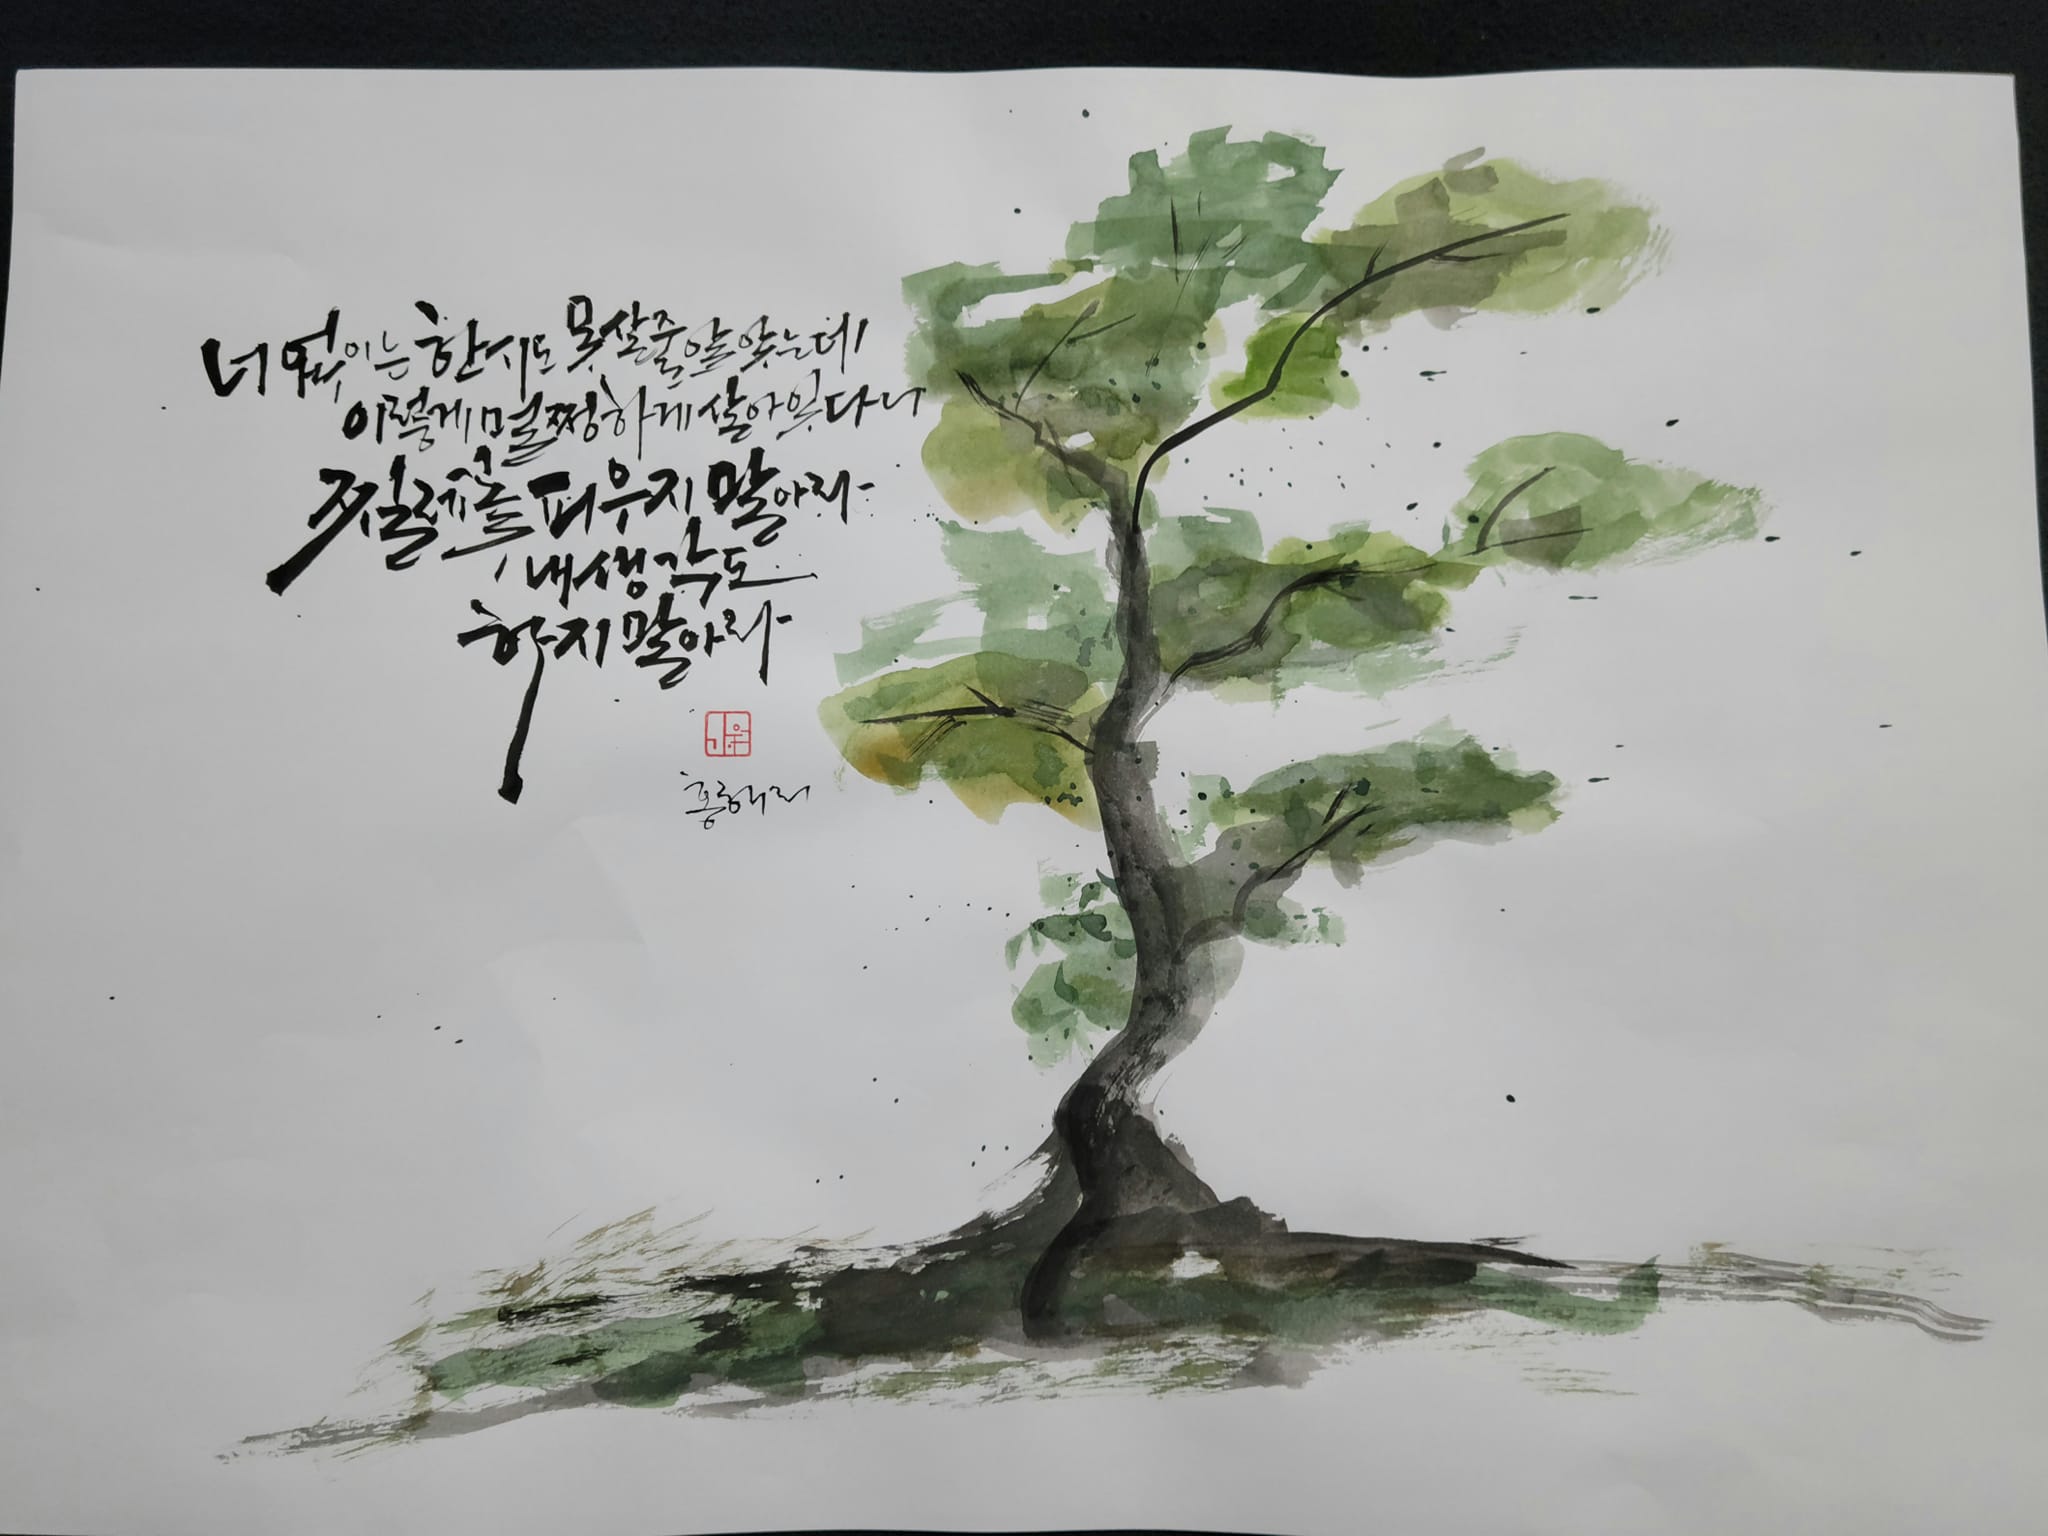 너 없이는 한시도 못살줄 알았는데
이렇게 멀쩡하게 살아있다니
찔레꽃 피우지 말아라
내 생각도
하지 말아라